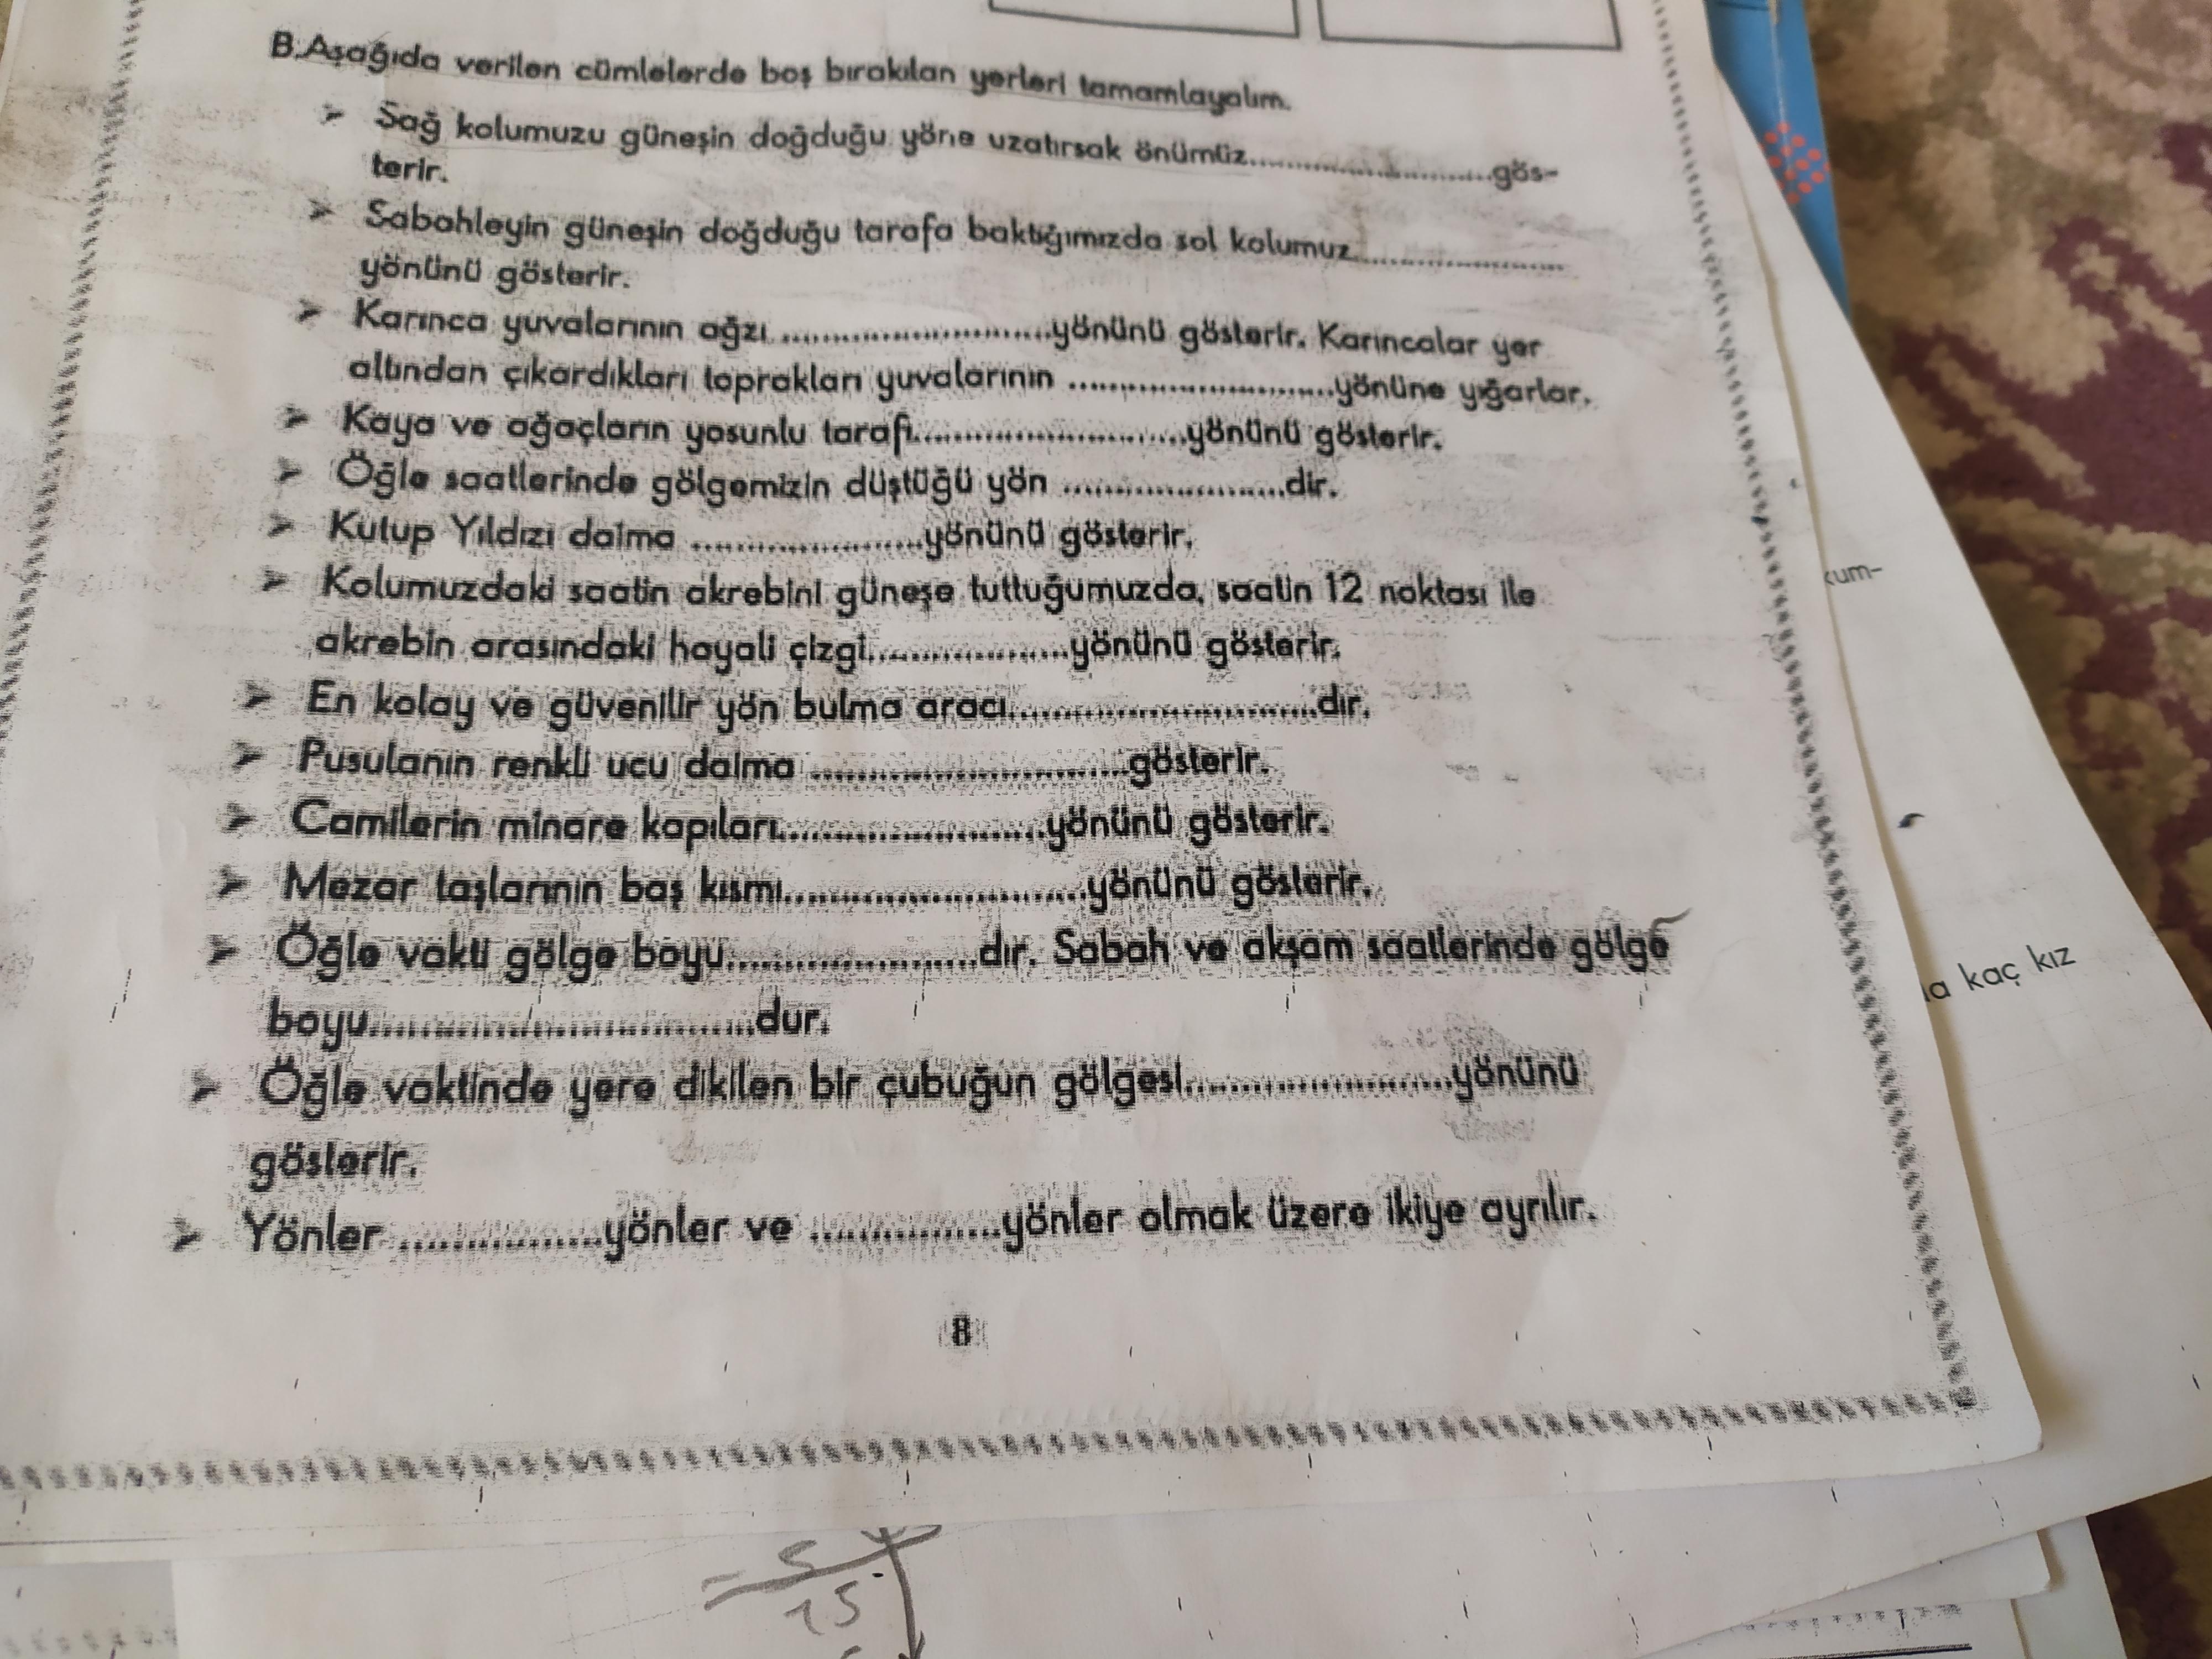 B.Aşağıda verilen cümlelerde boş bırakılan yerleri tamamlayalım.
➤ Sağ kolumuzu güneşin doğduğu yöne uzatırsak önümüz..............................gös-
terir.
➤ Sabahleyin güneşin doğduğu tarafa baktığımızda sol kolumuz..........................
yönünü gösterir.
➤ Karınca yuvalarının ağzı ..............................yönünü gösterir. Karıncalar yer
altından çıkardıkları toprakları yuvalarının ..............................yönüne yığarlar.
➤ Kaya ve ağaçların yosunlu tarafı..............................yönünü gösterir.
➤ Öğle saatlerinde gölgemizin düştüğü yön ........................dir.
➤ Kutup Yıldızı daima ........................yönünü gösterir.
➤ Kolumuzdaki saatin akrebini güneşe tuttuğumuzda, saatin 12 noktası ile
akrebin arasındaki hayali çizgi......................yönünü gösterir.
➤ En kolay ve güvenilir yön bulma aracı..................................dır.
➤ Pusulanın renkli ucu daima ..................................gösterir.
➤ Camilerin minare kapıları............................yönünü gösterir.
➤ Mezar taşlarının baş kısmı................................yönünü gösterir.
➤ Öğle vakti gölge boyu..........................dır. Sabah ve akşam saatlerinde gölge
boyu.......................................dur.
➤ Öğle vaktinde yere dikilen bir çubuğun gölgesi..........................yönünü
gösterir.
➤ Yönler ....................yönler ve ..................yönler olmak üzere ikiye ayrılır.
8
kum-
kaç kız
5
15